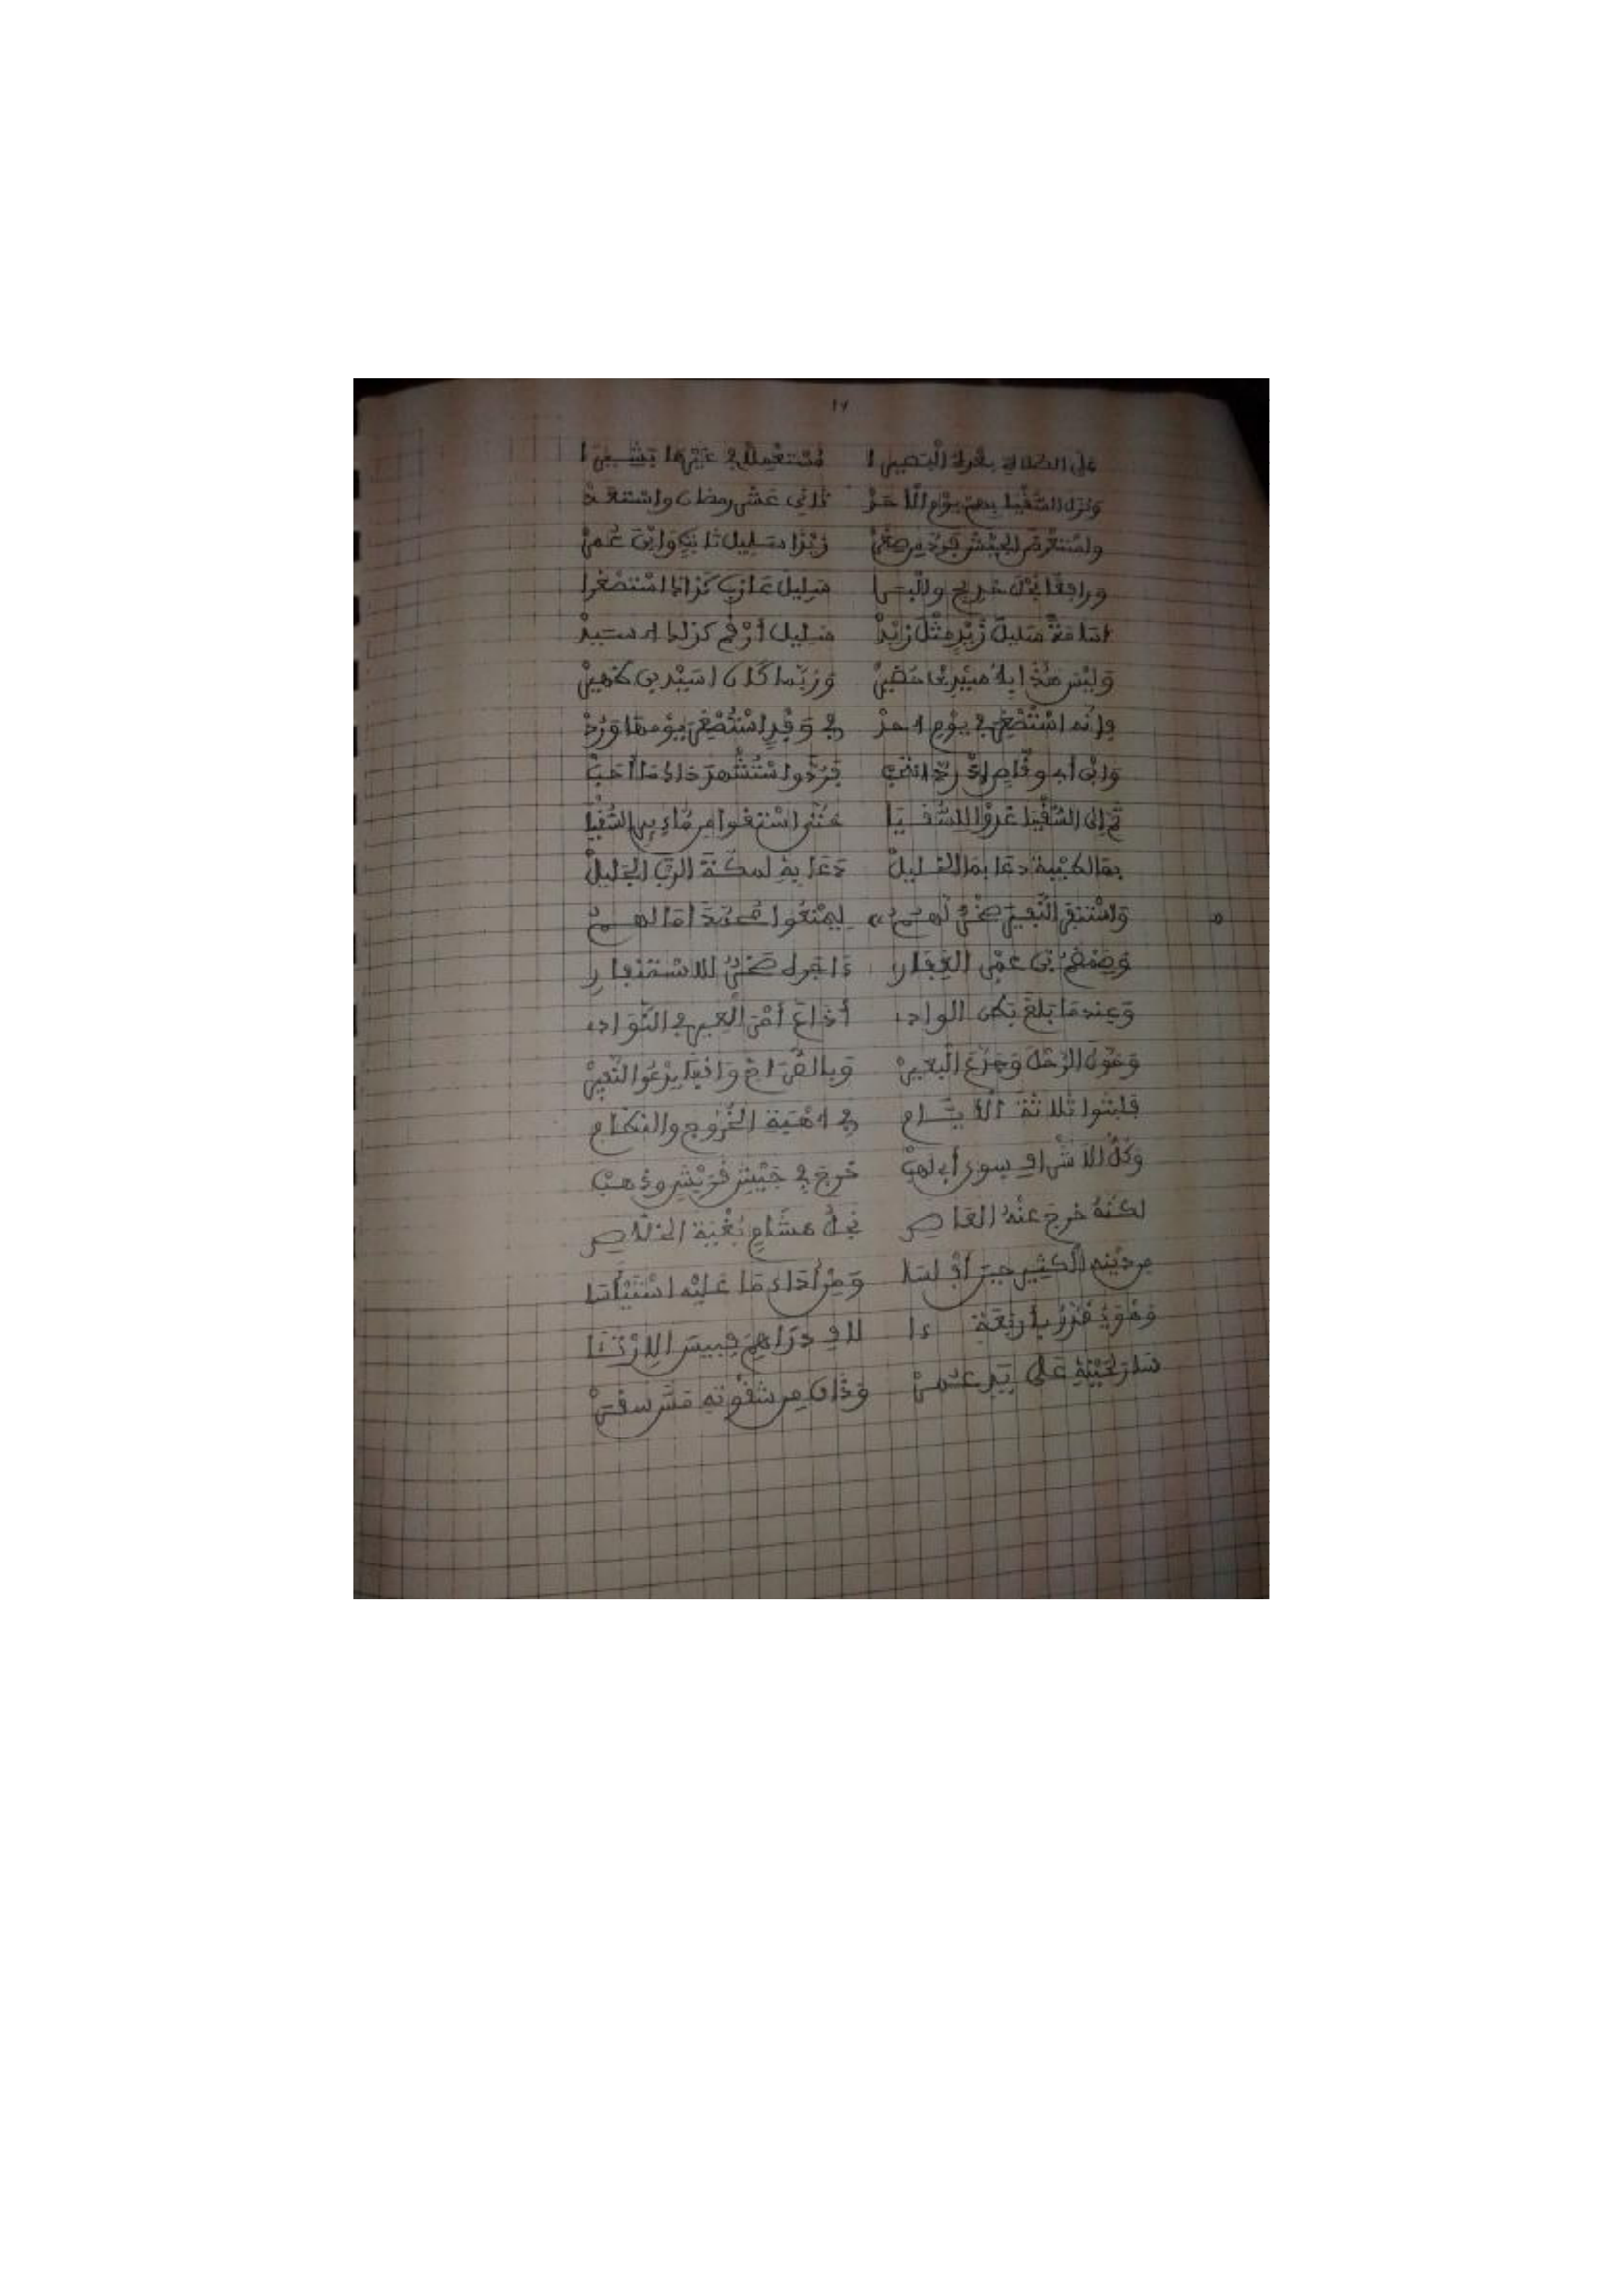 17
على الصلاة بهم البصيرا مستعملا في غيرها بشيرا
ونزل السقيا بهم يوم الأحد ثاني عشر رمضان واستعد
واستعرض الجيش فرد من صغر زيدا سليل ثابت وابن عمر
ورافعا نجل خديج والبرا سليل عازب كذا استصغرا
اسامة سليل زيد مثل زيد سليل أرقم كذلك اسيد
وليس هذا بابن سيد حضير وربما كان اسيد بن ظهير
وإنه استصغر في يوم احد وقد استصغر يومها ورد
وابن أبي وقاص إذ رد انتحب فردوا استشهد ذاك ما أحب
ثم إلى السقيا غدوا للسقيا حتى استقوا من ماء بير السقيا
بها لطيبة دعا بما الخليل دعا به لمكة الرب الجليل
واستنفر النفير ضمضم لهم ليمنعوا أموالهم
وضمضم بن عمرو الغفاري للاستنفار
وعندما بلغ بطن الوادي أذاع أمر العير في النوادي
وحول الرحل وجدع البعير وبالصراخ واقفا يدعو النفير
فلبثوا ثلاثة الأيام في اهبة الخروج والنظام
وكل الاشراف سوى أبي لهب خرج في جيش قريش وذهب
لكنه خرج عنه العاص نجل هشام بغية الخلاص
من دينه الكثير حين أفلسا ومن أداء ما عليه استيأسا
وهو يقدر بأربعة ءا لاف دراهم
على يد عمر وذاك من شقوته